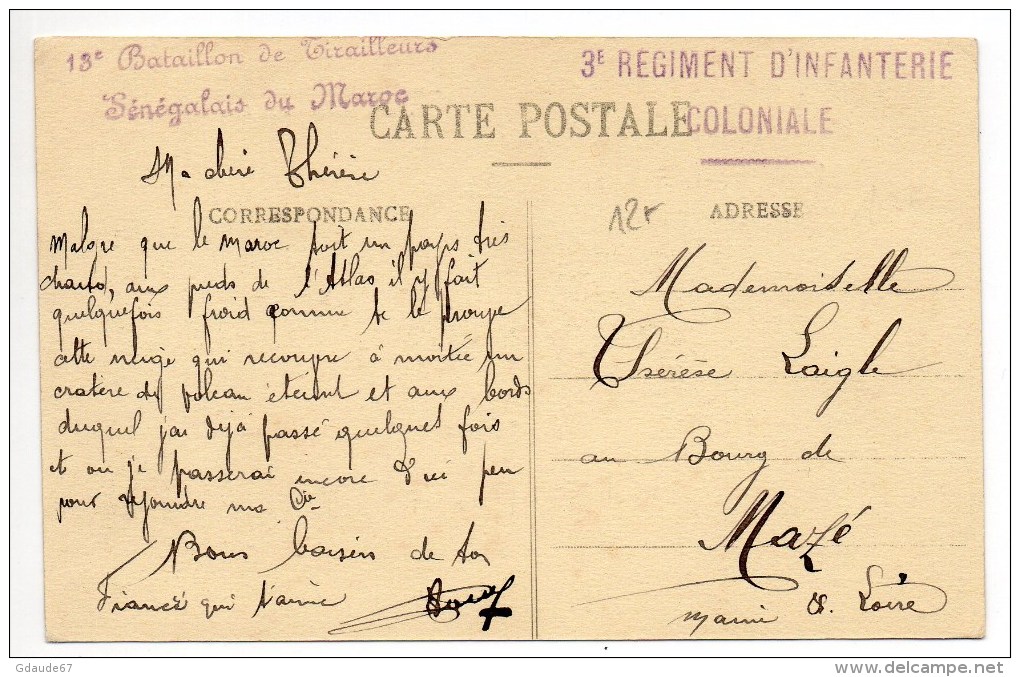 13e Bataillon de Tirailleurs
Sénégalais du Maroc
3E REGIMENT D'INFANTERIE
COLONIALE
CARTE POSTALE
Ma chère Thérèse
CORRESPONDANCE
Malgré que le Maroc soit un pays très
chaud, aux pieds de l'Atlas il y fait
quelquefois froid comme te le prouve
cette neige qui recouvre à moitié un
cratère du volcan éteint et aux bords
duquel j'ai déjà passé quelques fois
et ou je passerai encore d'ici peu
pour rejoindre ma Cie
Bons baisers de ton
Fiancé qui t'aime
12
ADRESSE
Mademoiselle
Thérèse Laigle
au Bourg de
Mazé
Maine & Loire
Gdaude67
www.delcampe.net